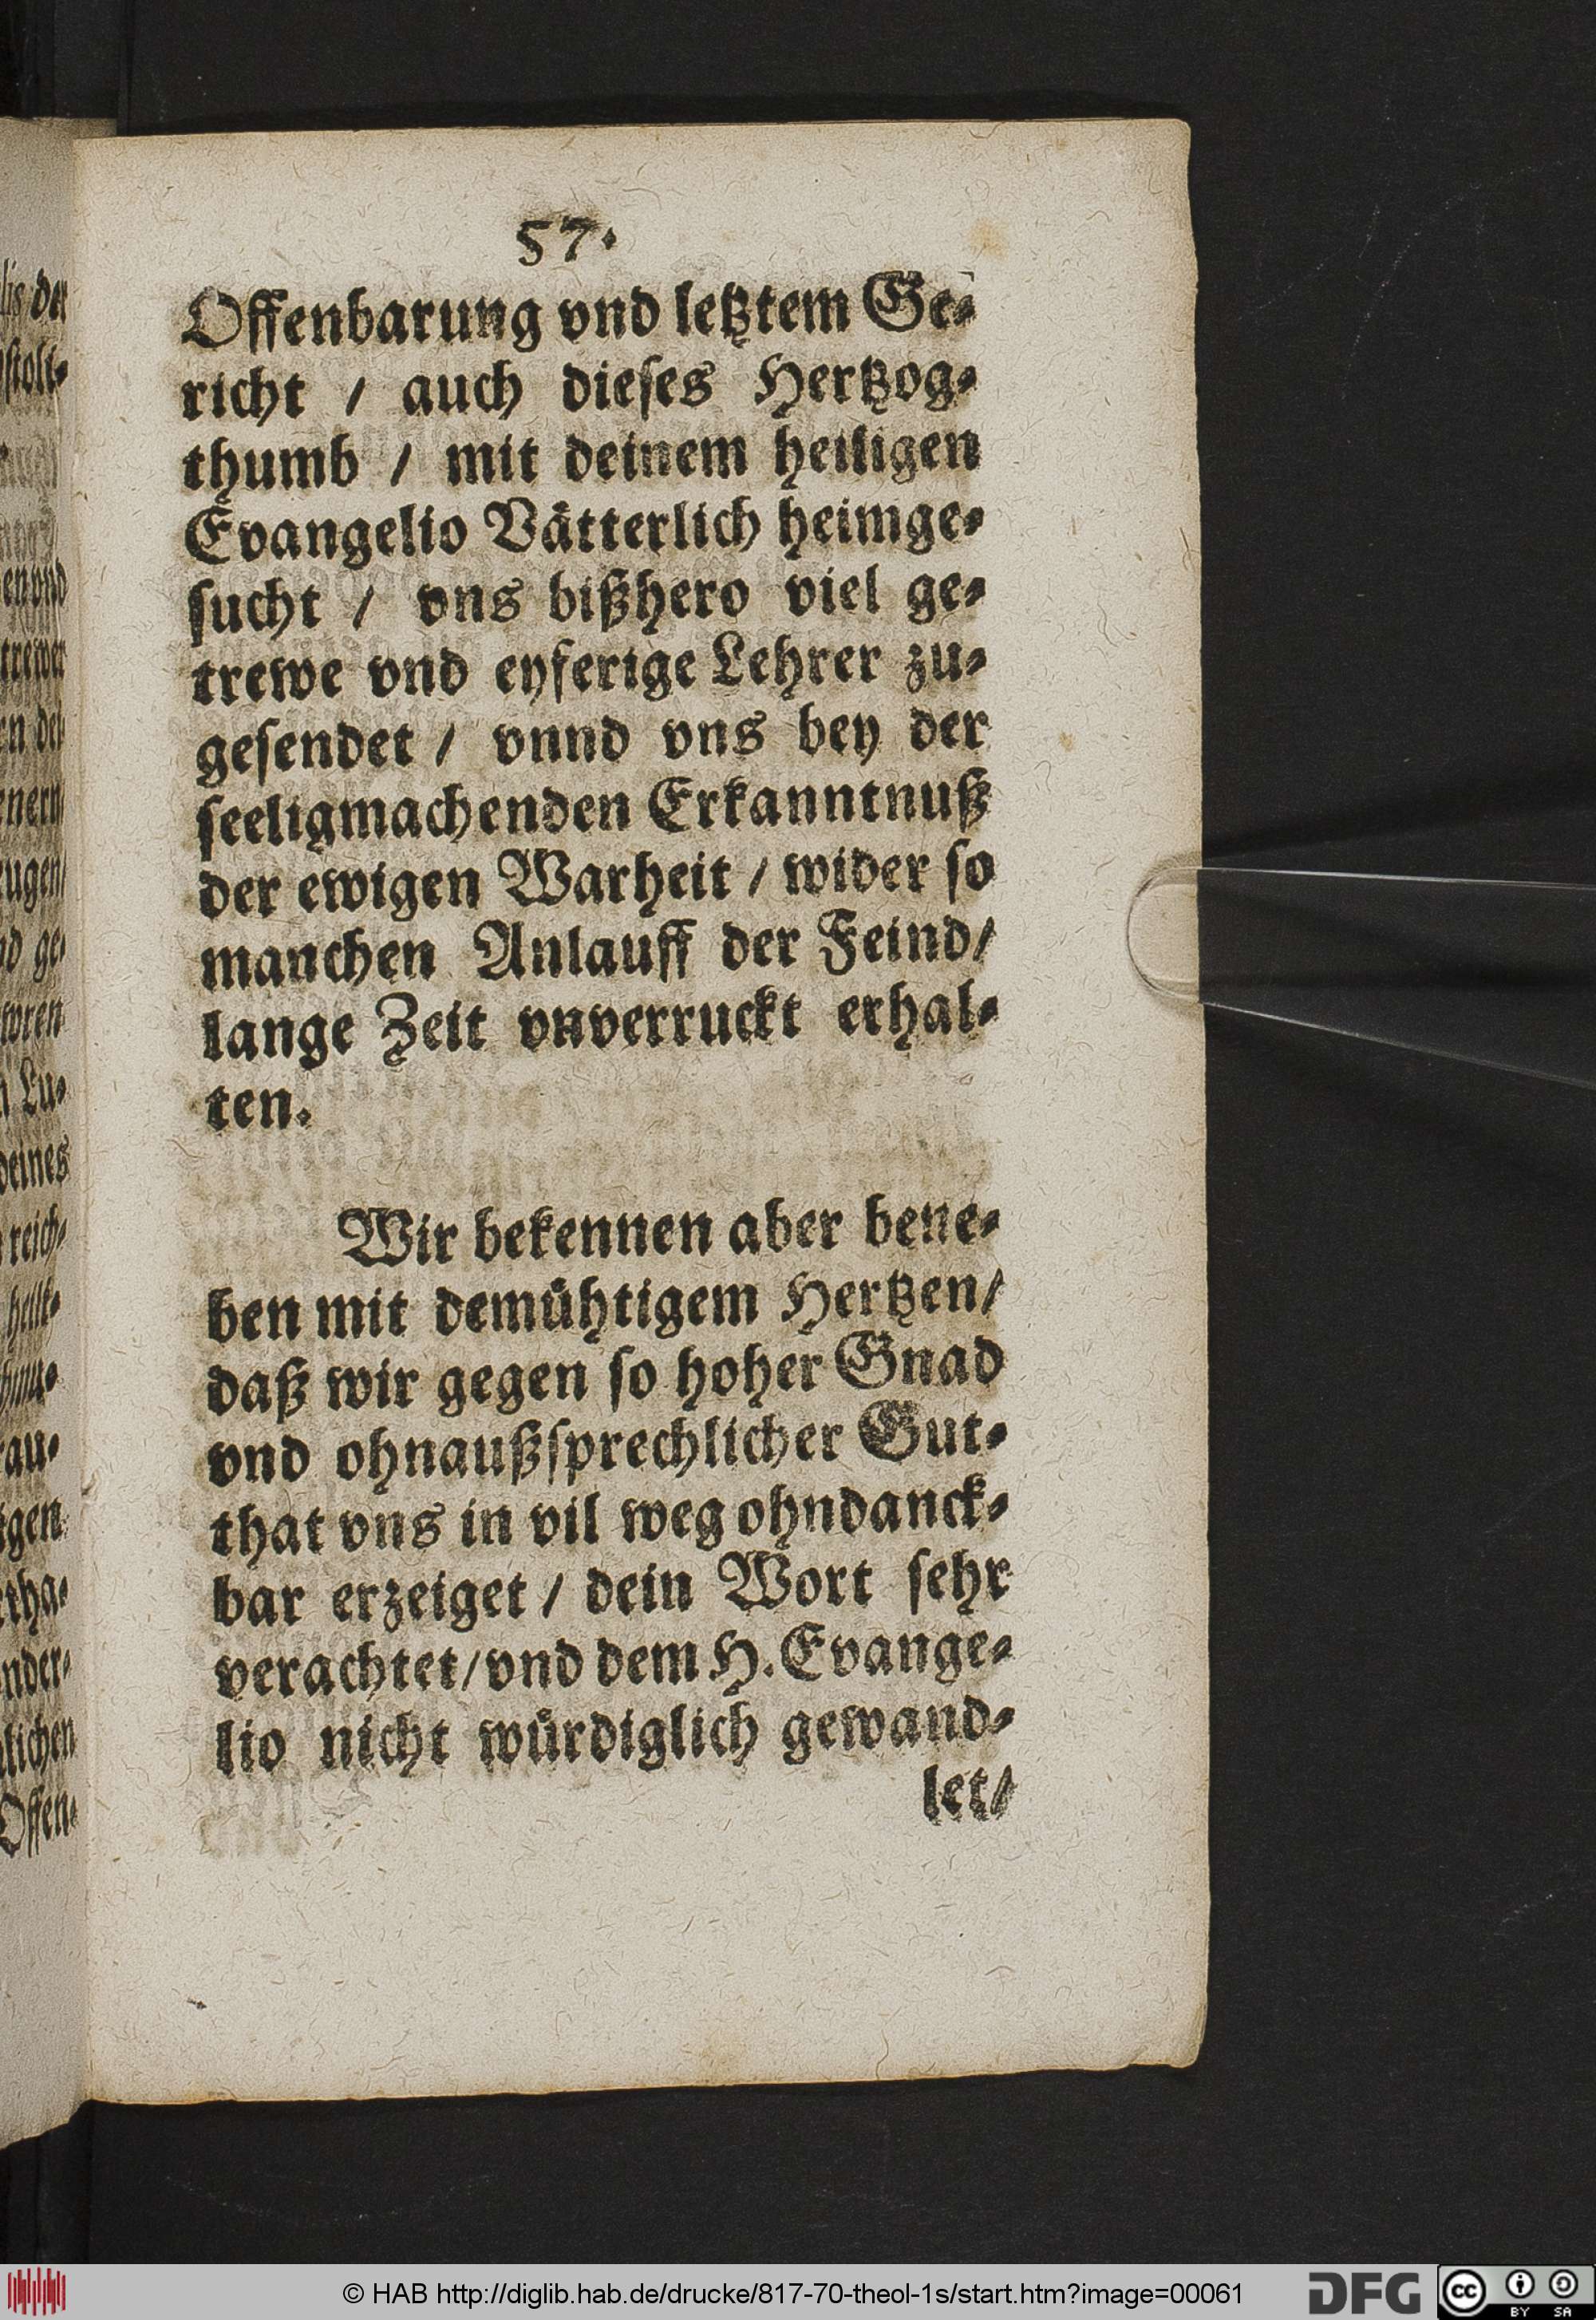 57.
Offenbarung vnd letztem Ge-
richt / auch dieses Hertzog-
thumb / mit deinem heiligen
Evangelio Vätterlich heimge-
sucht / vns bißhero viel ge-
trewe vnd eyferige Lehrer zu-
gesendet / vnnd vns bey der
seeligmachenden Erkanntnuß
der ewigen Warheit / wider so
manchen Anlauff der Feind/
lange Zeit vnverruckt erhal-
ten.
Wir bekennen aber bene-
ben mit demühtigem Hertzen/
daß wir gegen so hoher Gnad
vnd ohnaußsprechlicher Gut-
that vns in vil weg ohndanck-
bar erzeiget / dein Wort sehr
verachtet/vnd dem H. Evange-
lio nicht würdiglich gewand-
let/
© HAB http://diglib.hab.de/drucke/817-70-theol-1s/start.htm?image=00061
DFG
cc BY SA